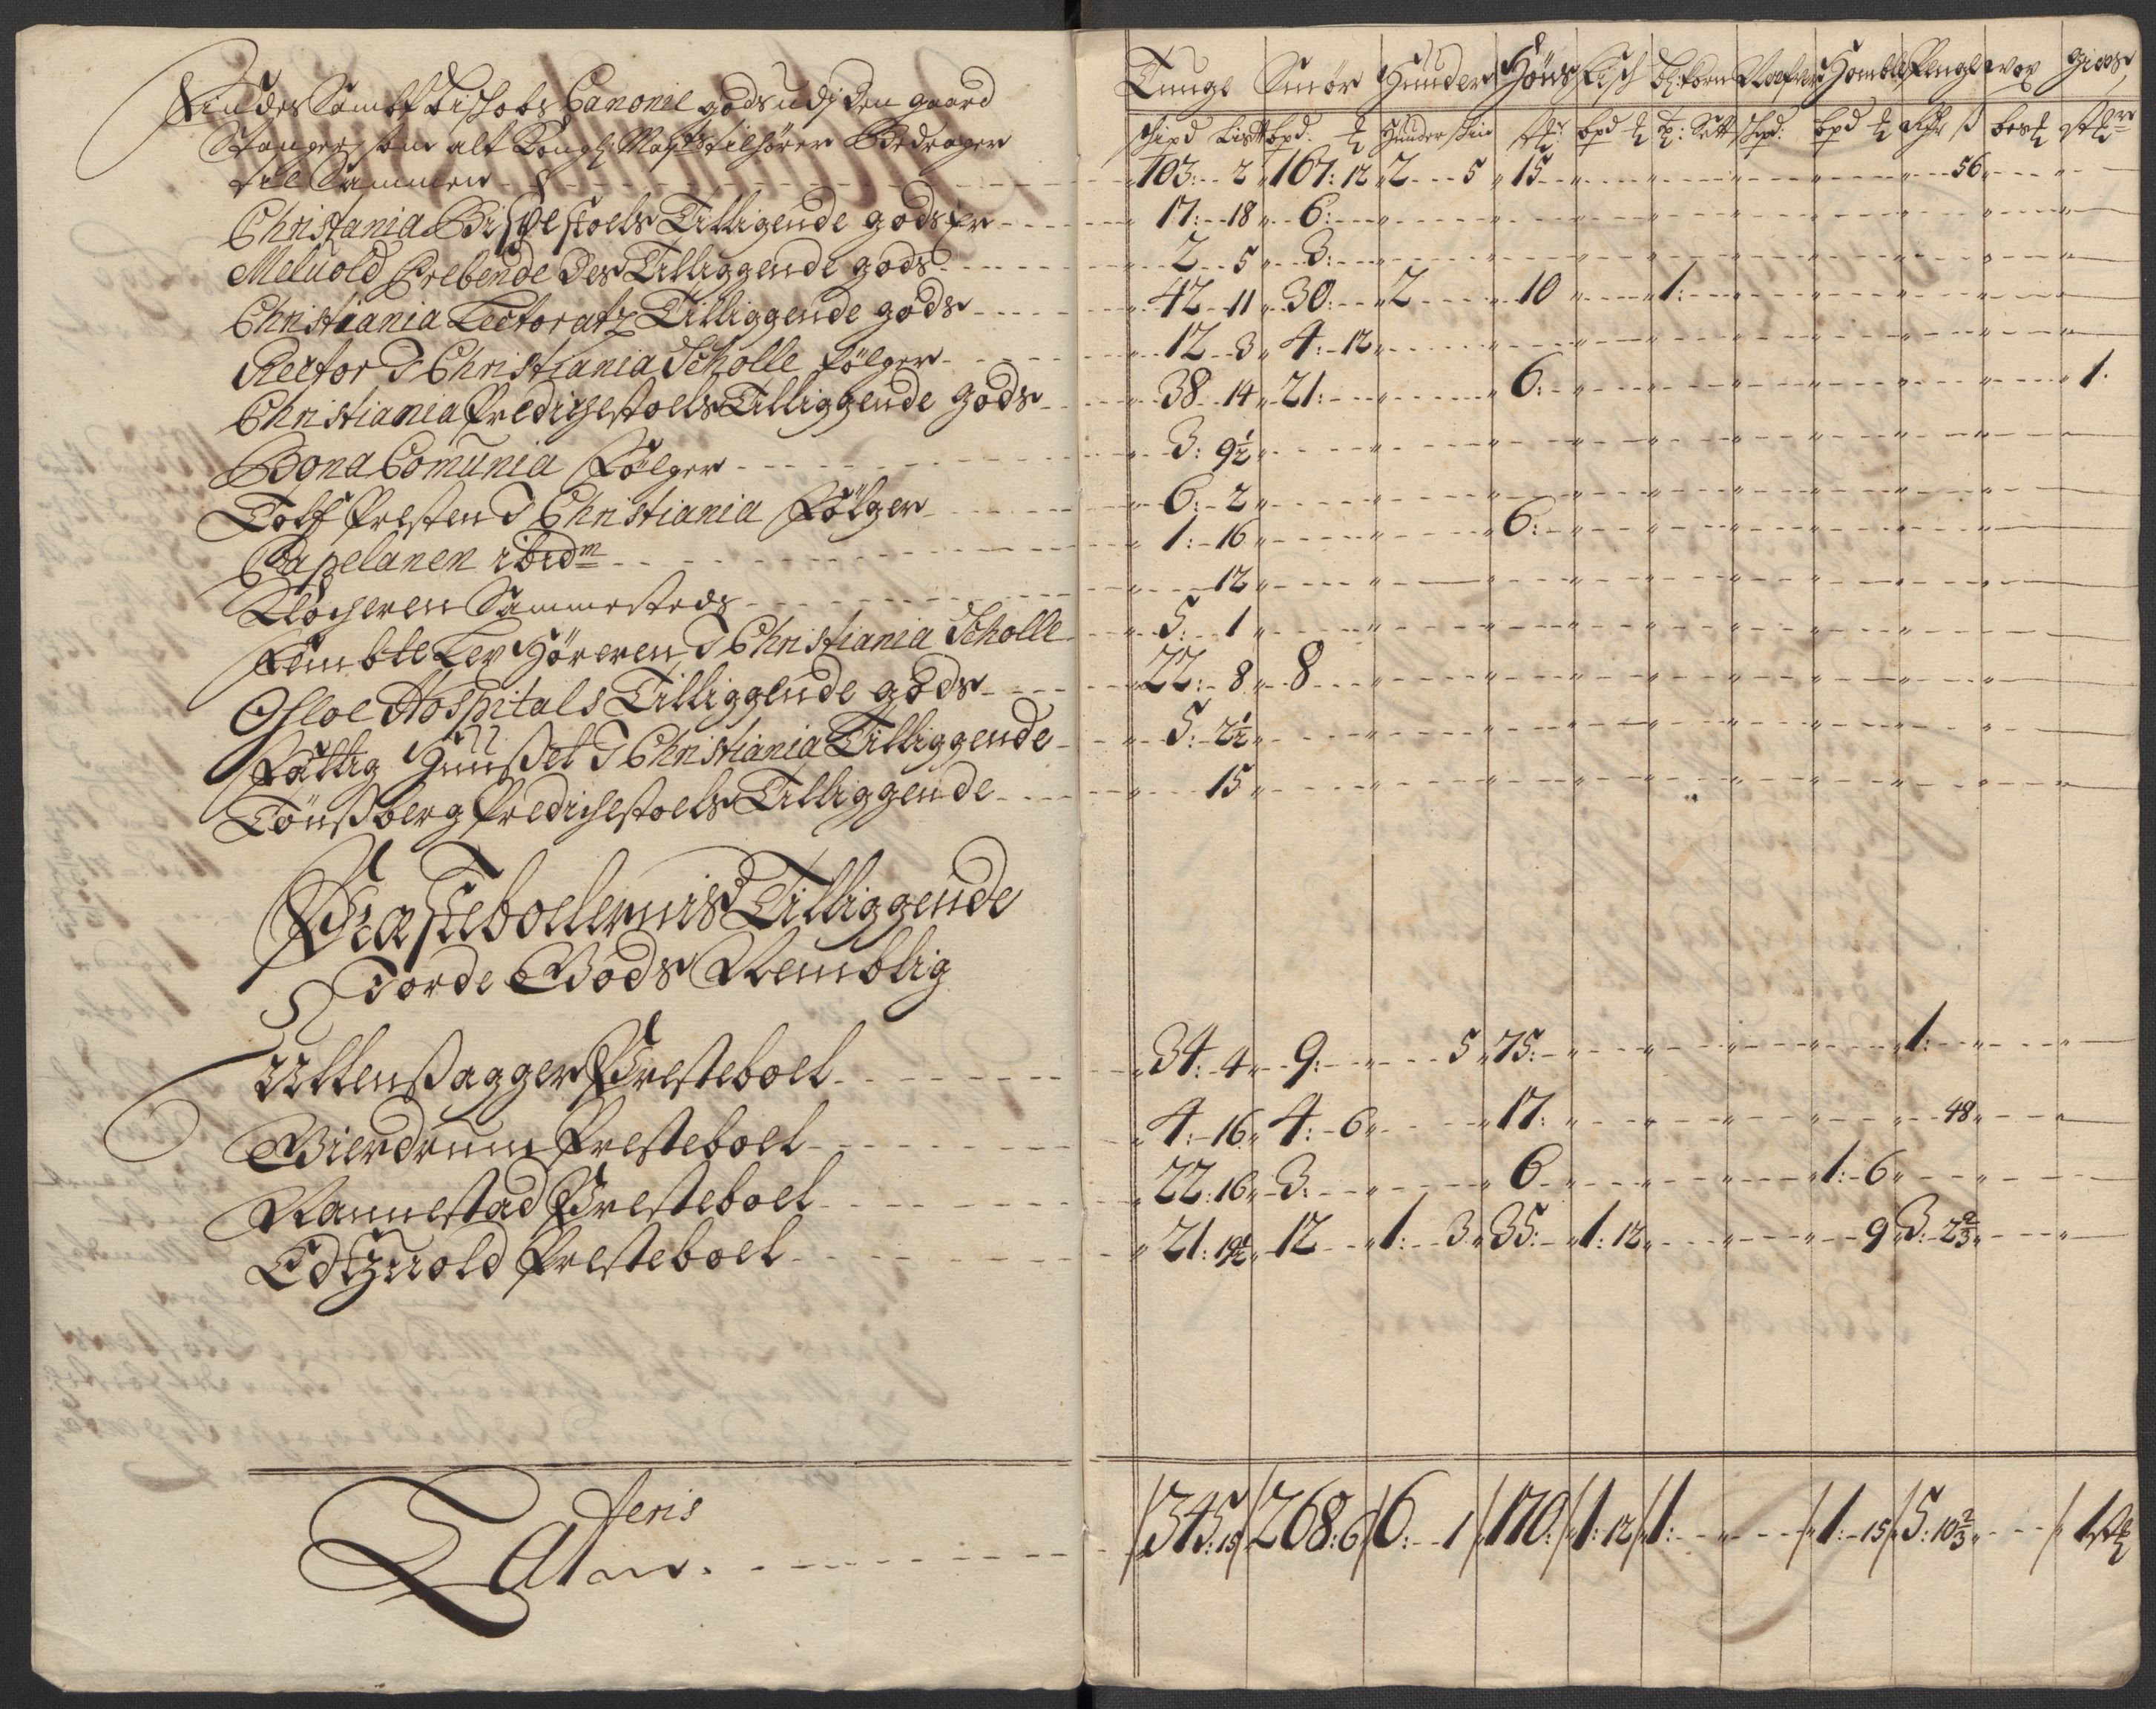 Findes Sambt Bischobs Canonie gods udj den gaard
Stanger, som alt Kongl: Mayts tilhører Bedrager
till Sammen
Christania Bispe stoels Tilligende gods er
Meluold Prebende des Tilliggende gods
Christiania Lectoratz Tilliggende gods
Rector I Christiania Scholle følger
Christiania Predichestoels Tilliggende gods
Bona Comunia Følger
Toldpresten I Christiania Følger
Capelanen ibidm
Klocheren Sammesteds
Fembte Lex Høreren I Christiania Scholle
Osloe Hospitals Tilliggende gods
Fattig Huusset I Christiania Tilliggende
Tønsberg Predichestoels Tilliggende
Præsteboelernis Tilliggende
Jorde Gods Nemblig
Ullensagger Presteboel
Gierdrum Presteboel
Nannestad Presteboel
Edtzuold Presteboel
Lateris
Tunge Smør Huuder Høns Fisch bl: Korn Homble Penge vox
Schpd Lispd bpd Huuder Skind
103: 2 167: 12 2 5 15 56
17: 18 6:
2 5 3:
42 11 30: 2 10 1:
12 3 4: 12
38 14 21: 6: 1.
3: 9½
6: 2
1: 16 6:
12
5: 1
22: 8 8
5: 2½
15
34: 4 9: 5 75: 1:
4: 16 4: 6 17: 48
22: 16 3: 6 1: 6
21: 19½ 12 1: 3 35: 1: 12 9 3: 2⅔
345: 15 268: 6 6: 1 170: 1: 12 1: 1: 15 5: 10⅔ 1